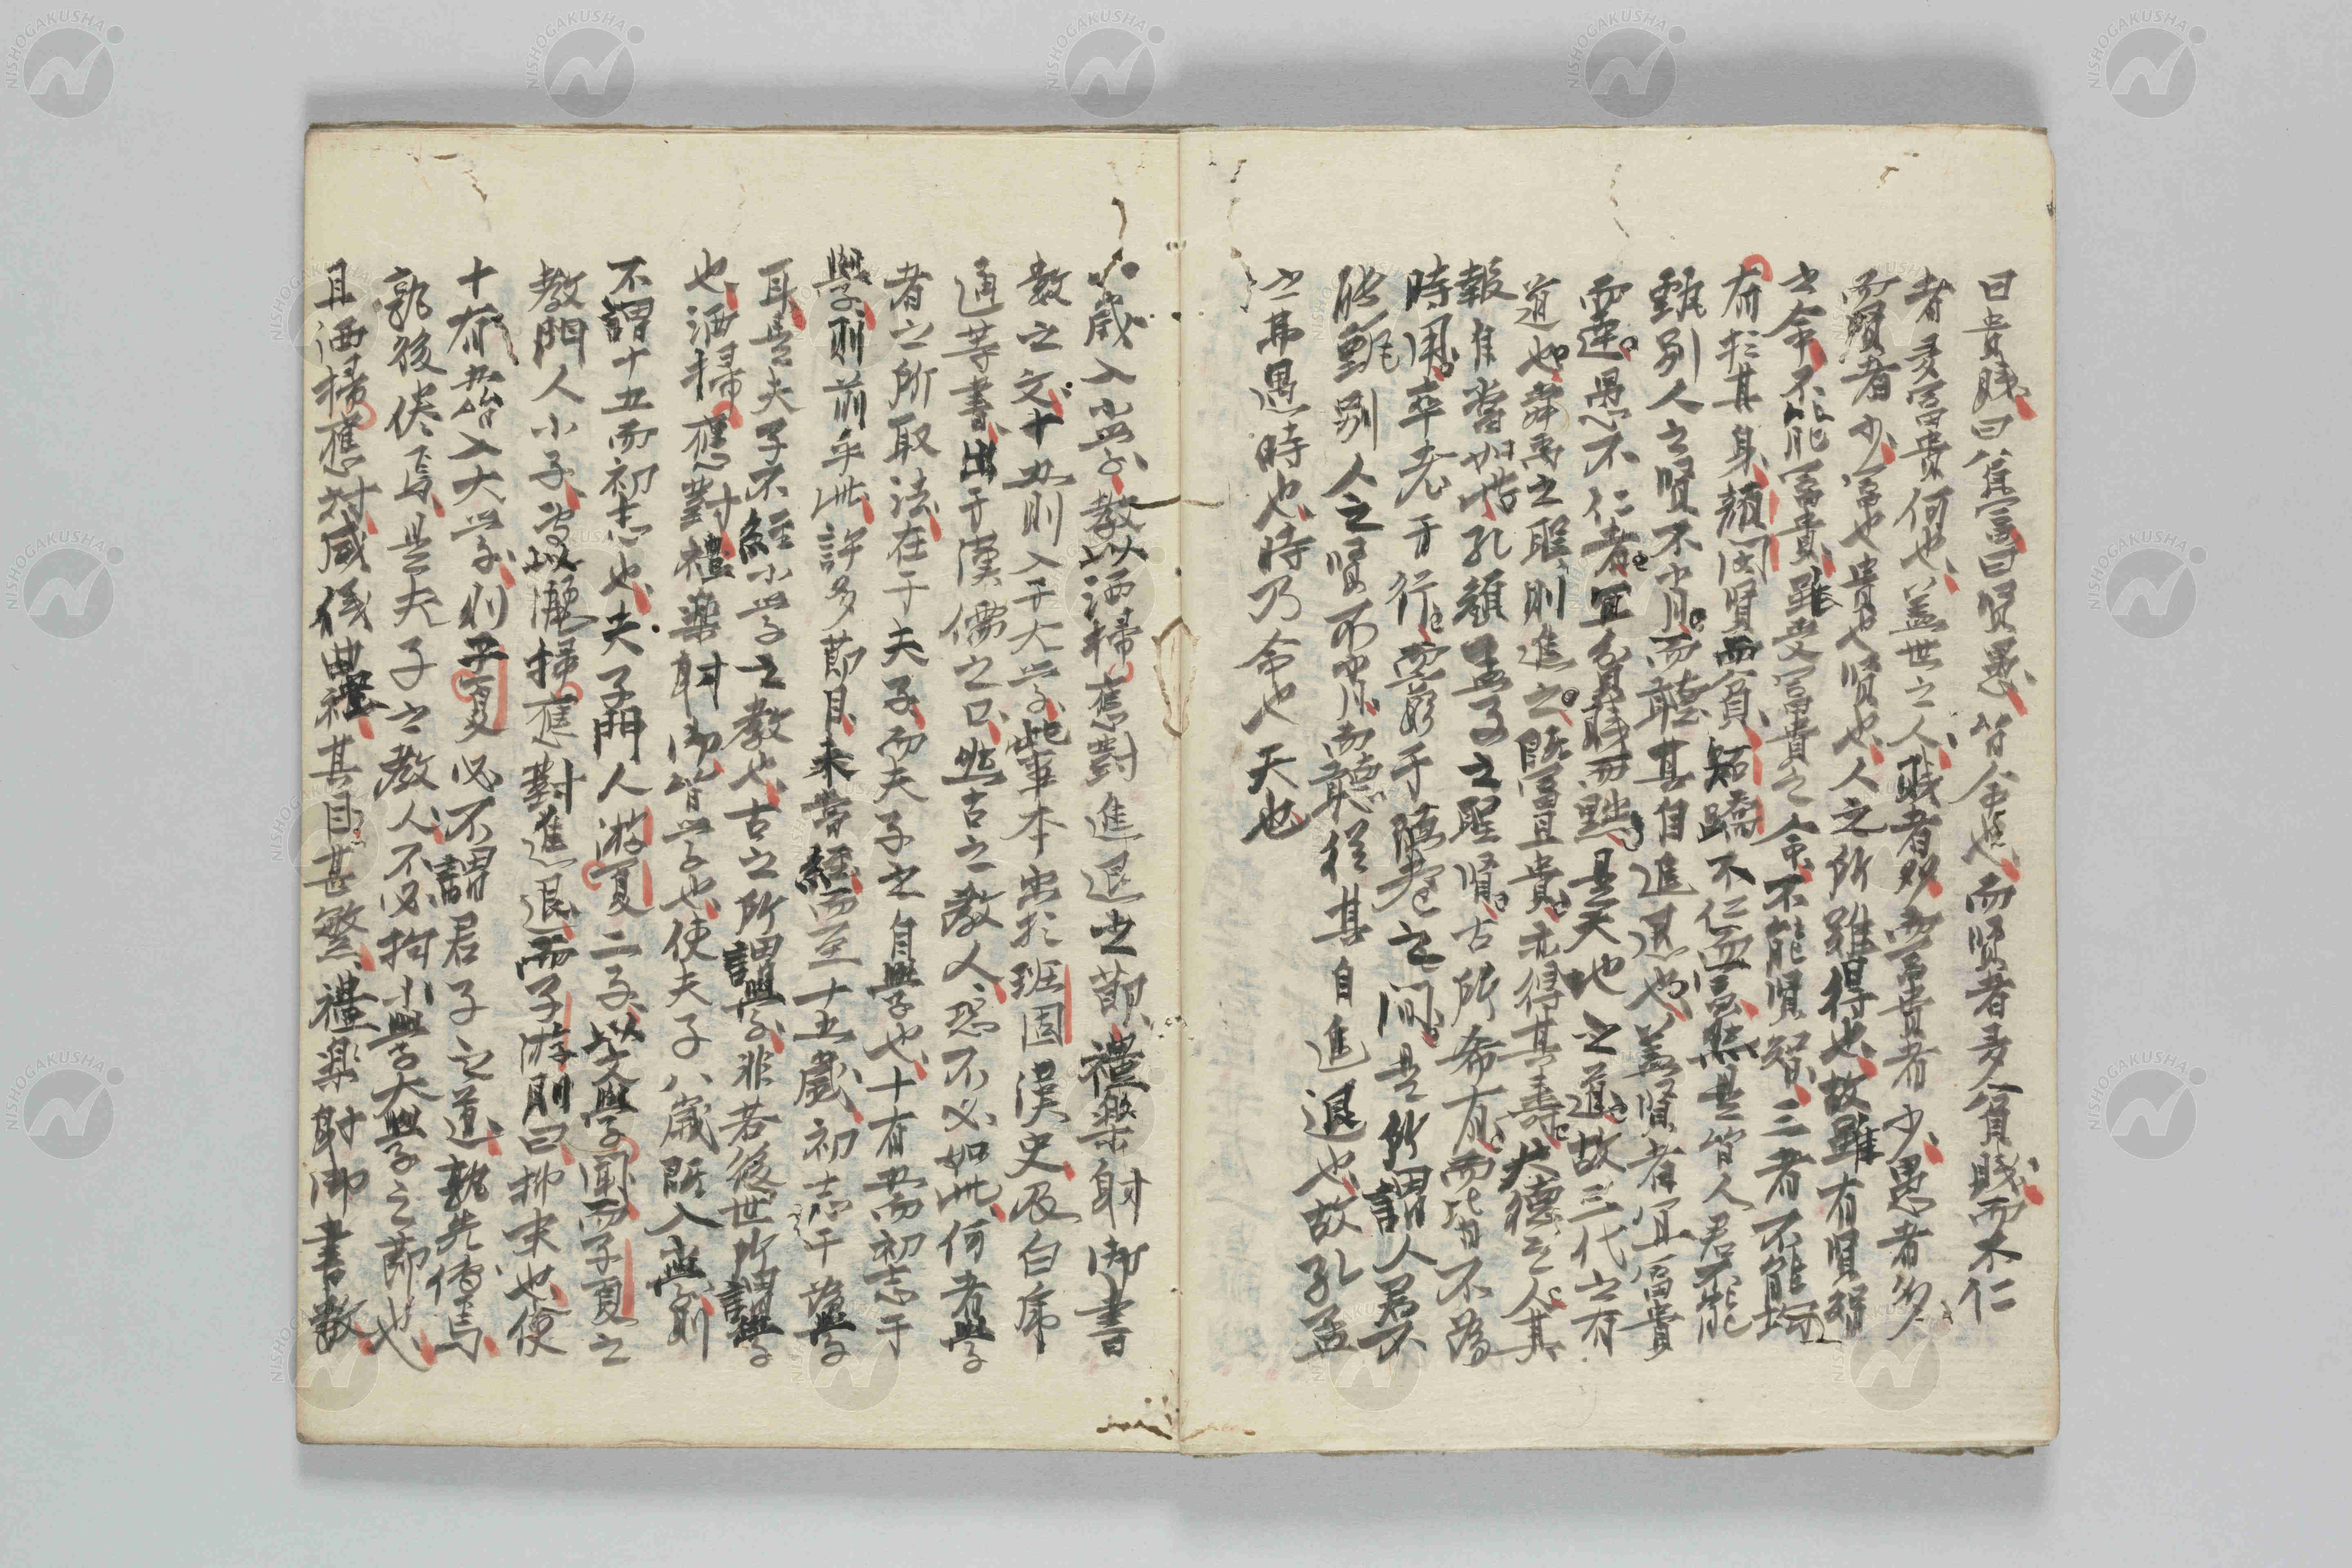 曰貴賤曰貧富曰賢愚皆命也而賢者多貧賤而不仁
者多富貴何也蓋世之人賤者多而富貴者少愚者多
而賢者少富也貴也賢也人之所難得也故雖有賢智
之命不能富貴雖受富貴之命不能賢智三者不能均
有於其身顔閔賢而貧跖蹻不仁而富然是皆人君不能
甄別人之賢不肖而聽其自進退也蓋賢者宜富貴
而達愚不仁者宜貧賤而黜是天地之道故三代之有
道也舜禹之聖則進之既富且貴亦得其壽大德之人其
報自當如此孔顔孟子之聖賢古所希有而皆不爲
時用卒老于行而窮于陋巷之間是所謂人君不
能甄別人之賢不肖而聽從其自進退也故孔孟
之不遇時也時乃命也天也
八歳入小学教以洒掃應對進退之節禮樂射御書
數之文十五則入于大学此事本出於班固漢史及白虎
通等書出于漢儒之口然古之教人恐不必如此何者學
者之所取法在于夫子而夫子之自學也十有五而初志于
學則前乎此許多節目未嘗經而至十五歳初志于爲學
耳是夫子不經小学之教也古之所謂學非若後世所謂學
也洒掃應對禮樂射御皆学也使夫子八歳既入學則
不謂十五而初志也夫子門人游夏二子以文學聞而子夏之
教門人小子以灑掃應對進退而子游則曰抑末也使
十有五始入大学則子夏必不謂君子之道孰先傳焉
孰後倦焉是夫子之教人不必拘小學大學之節也
且洒掃應對威儀曲禮其目甚繁禮樂射御書數